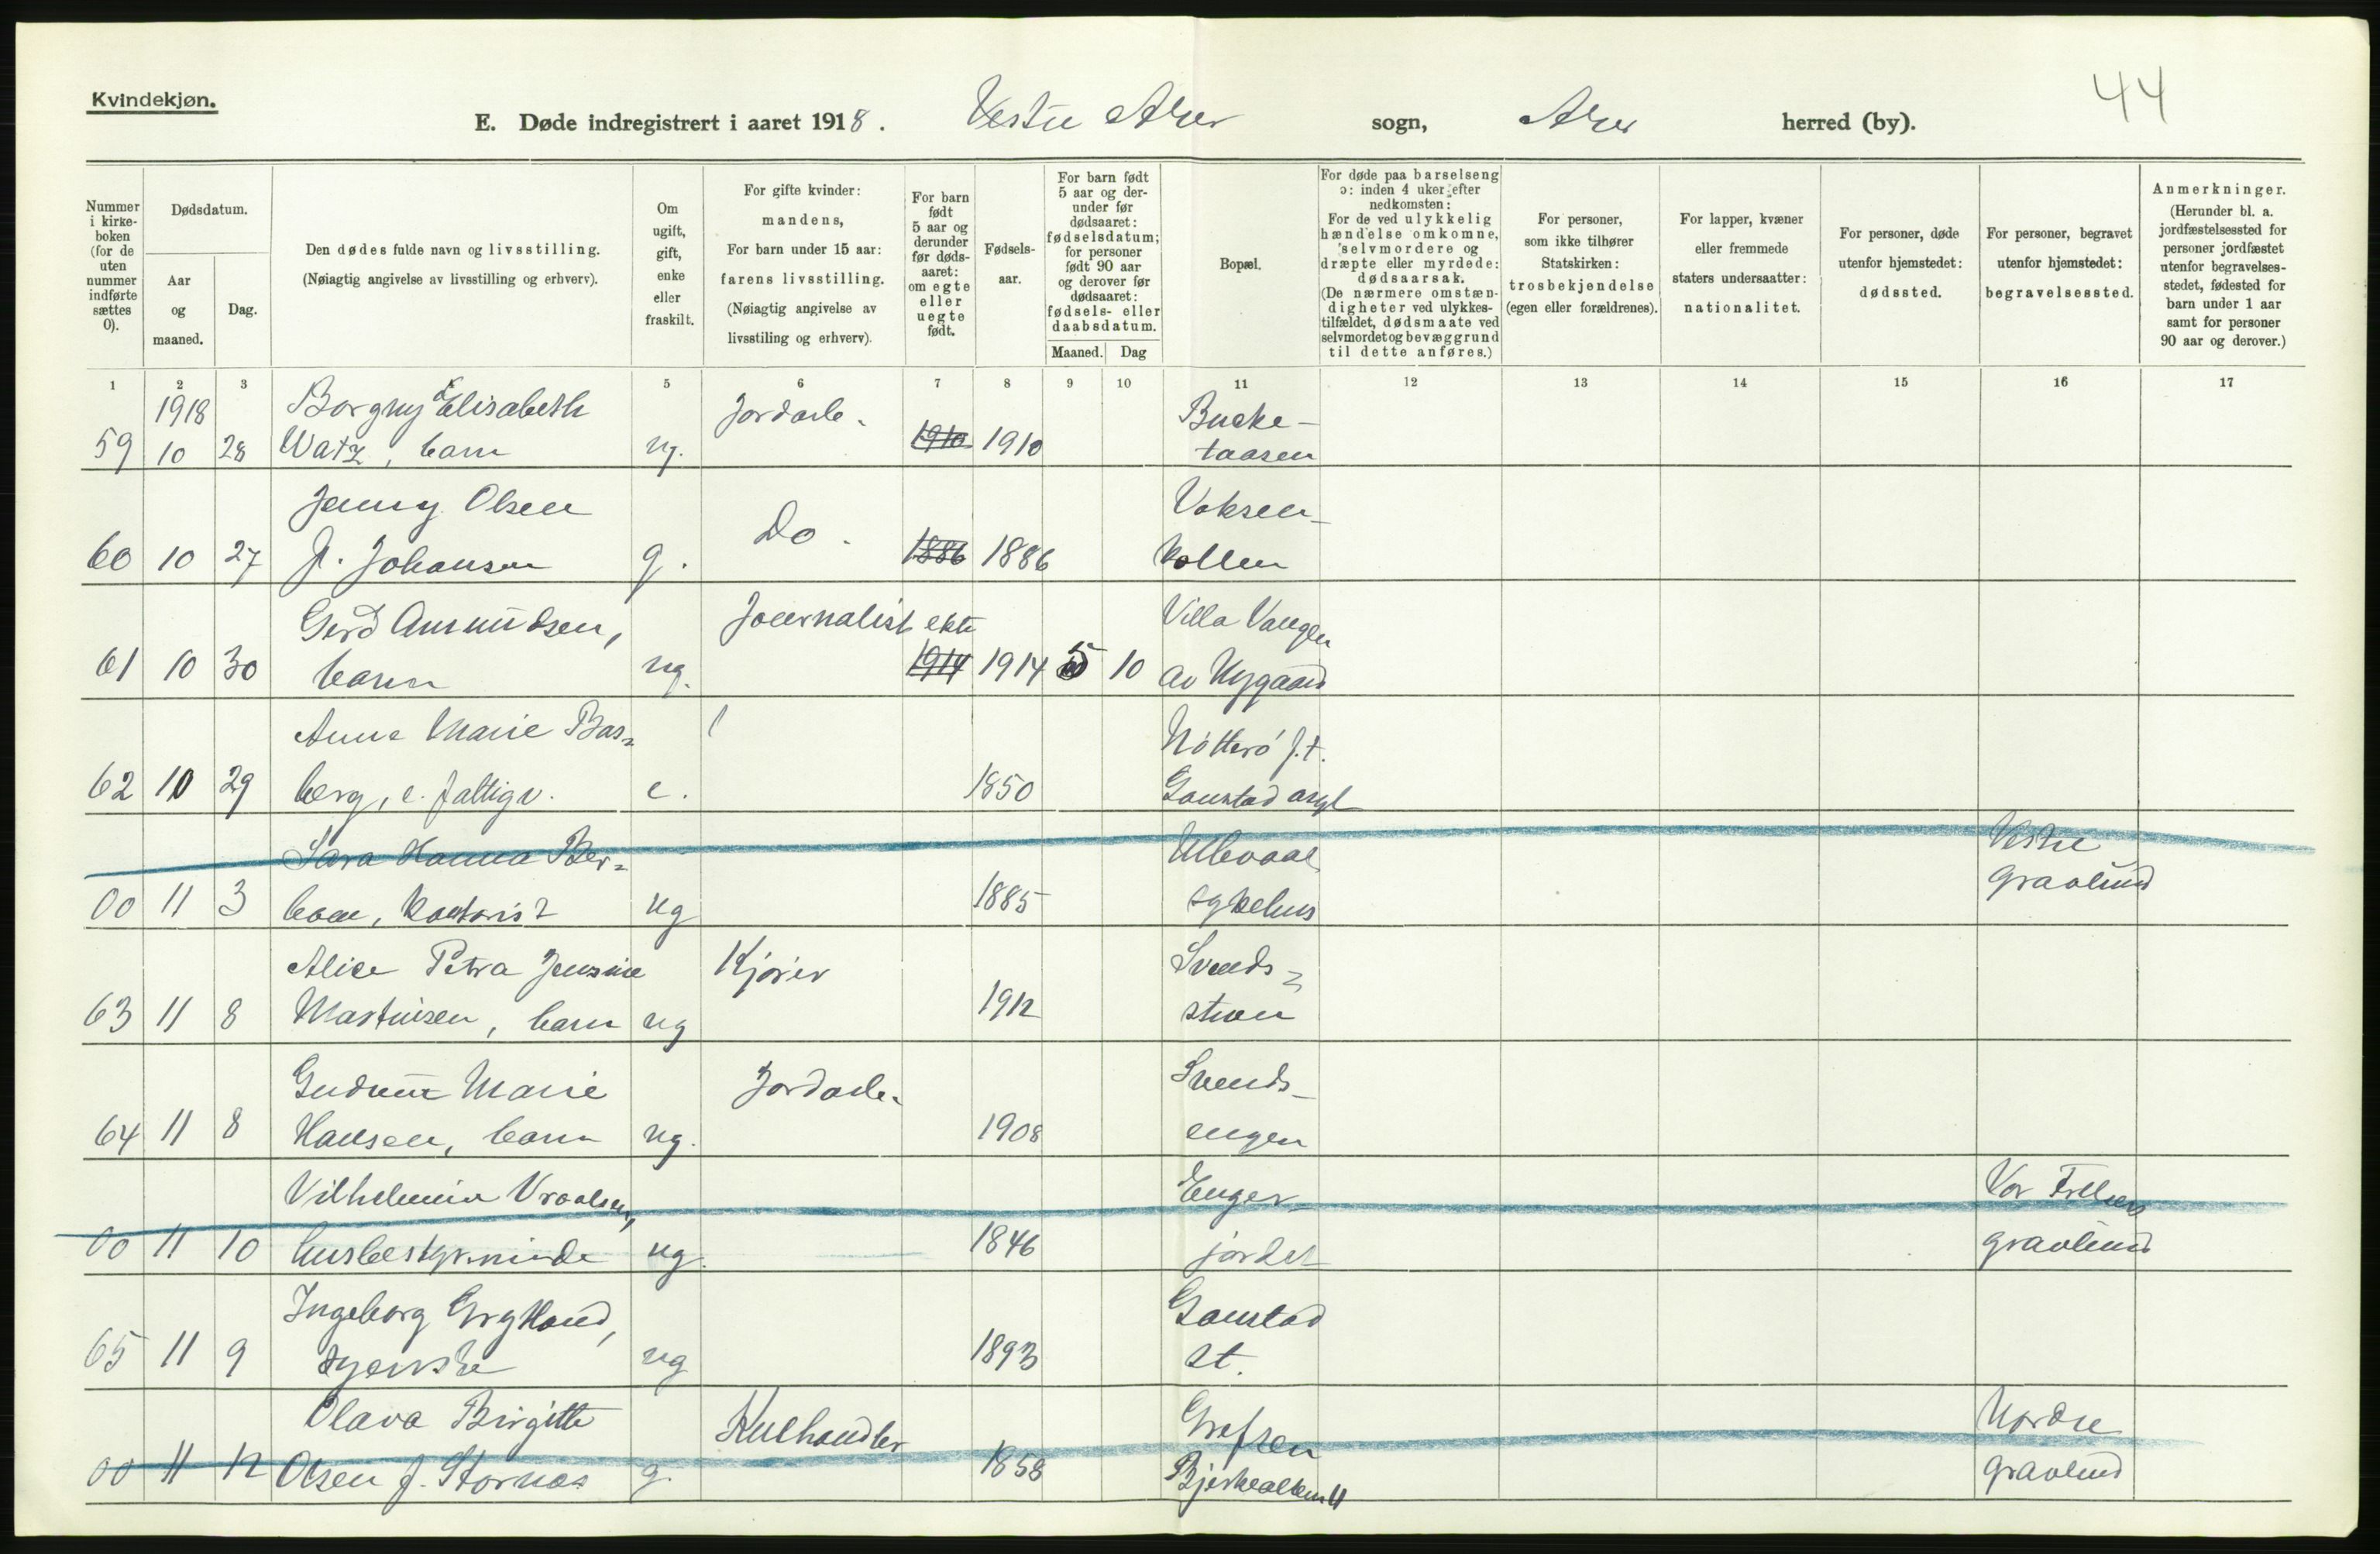 Kvindekjøn.
44
E. Døde indregistrert i aaret 1918. Vestre Aker sogn, Aker herred (by).
Nummer i kirke-boken (for de uten nummer indførte sættes 0).
Dødsdatum.
Aar og maaned.
Dag.
Den dødes fulde navn og livsstilling.
(Nøiagtig angivelse av livsstilling og erhverv).
Om ugift, gift, enke eller fraskilt.
For gifte kvinder: mandens,
For barn under 15 aar: farens livsstilling.
(Nøiagtig angivelse av livsstiling og erhverv).
For barn født 5 aar og derunder før døds-aaret: om egte eller uegte født.
Fødsels-aar.
For barn født 5 aar og der-under før dødsaaret: fødselsdatum; for personer født 90 aar og derover før dødsaaret: fødsels- eller daabsdatum.
Maaned. Dag
Bopæl.
For døde paa barselseng ɔ: inden 4 uker efter nedkomsten:
For de ved ulykkelig hændelse omkomne, selvmordere og dræpte eller myrdede: dødsaarsak.
(De nærmere omstæn-digheter ved ulykkes-tilfældet, dødsmaate ved selvmordet og bevæggrund til dette anføres.)
For personer, som ikke tilhører Statskirken: trosbekjendelse (egen eller forældrenes).
For lapper, kvæner eller fremmede staters undersaatter: nationalitet.
For personer, døde utenfor hjemstedet: dødssted.
For personer, begravet utenfor hjemstedet: begravelsessted.
Anmerkninger.
(Herunder bl. a. jordfæstelsessted for personer jordfæstet utenfor begravelses-stedet, fødested for barn under 1 aar samt for personer 90 aar og derover.)
1 2 3 5 6 7 8 9 10 11 12 13 14 15 16 17
1918 Borghy Elisabeth Jordarb. Buske-
59 10 28 Watz, barn ug. 1910 1910 taasen
Jenny Olsen Do. Voksen-
60 10 27 f. Johansen g. 1886 1886 kollen
Gerd Amundsen, Journalist ekte Villa Vangen
61 10 30 barn ug. 1914 1914 5 10 av Nygaard
Anne Marie Bas- Nötterö f.t.
62 10 29 berg, e. fattigv. e. 1850 Gaustad asyl
Sara Hanna Ber- Ullevaal Vestre
00 11 3 kontorist ug 1885 sykehus gravlund
Alice Petra Jensine Kjörer Svends-
63 11 8 Martinsen, barn ug 1912 stuen
Gudrun Marie Jordarb. Svends-
64 11 8 Hansen, barn ug. 1908 engen
Vilhelmine Vraalsen, Enger- Vor Frelsers
00 11 10 husbestyrerinde ug. 1846 jordet gravlund
Ingeborg Grytland, Gaustad
65 11 9 syerske ug 1893 st.
Olava Birgitte Kulhandler Grefsen Nordre
00 11 12 Olsen f. Stornæs g. 1858 Bjerkealleen 11 gravlund